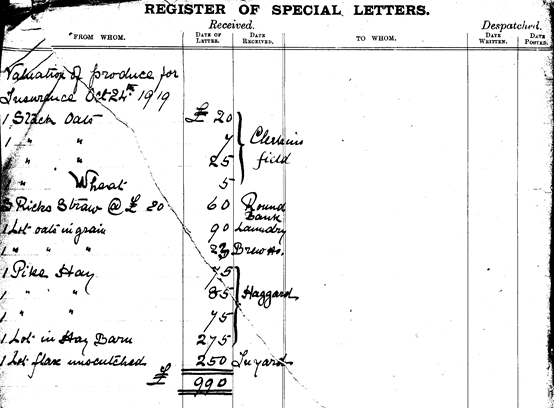 REGISTER OF SPECIAL LETTERS.
Received. Despatched.
FROM WHOM. DATE OF LETTER. DATE RECEIVED. TO WHOM. DATE WRITTEN. DATE POSTED.
Valuation of produce for
Insurance Oct 24th 1919
1 Stack Oats £ 20
1 " " 7
" " 25
" Wheat 5
field
3 Ricks Straw @ £ 20 60 Round Bank
1 Lot oats in grain 90 Laundry
1 " " " 23 Brew Ho.
1 Pike Hay 75
1 " " 85 Haggard
1 " " 75
1 Lot in Hay Barn 275
1 Lot flax unscutched 250 In yard
£ 990